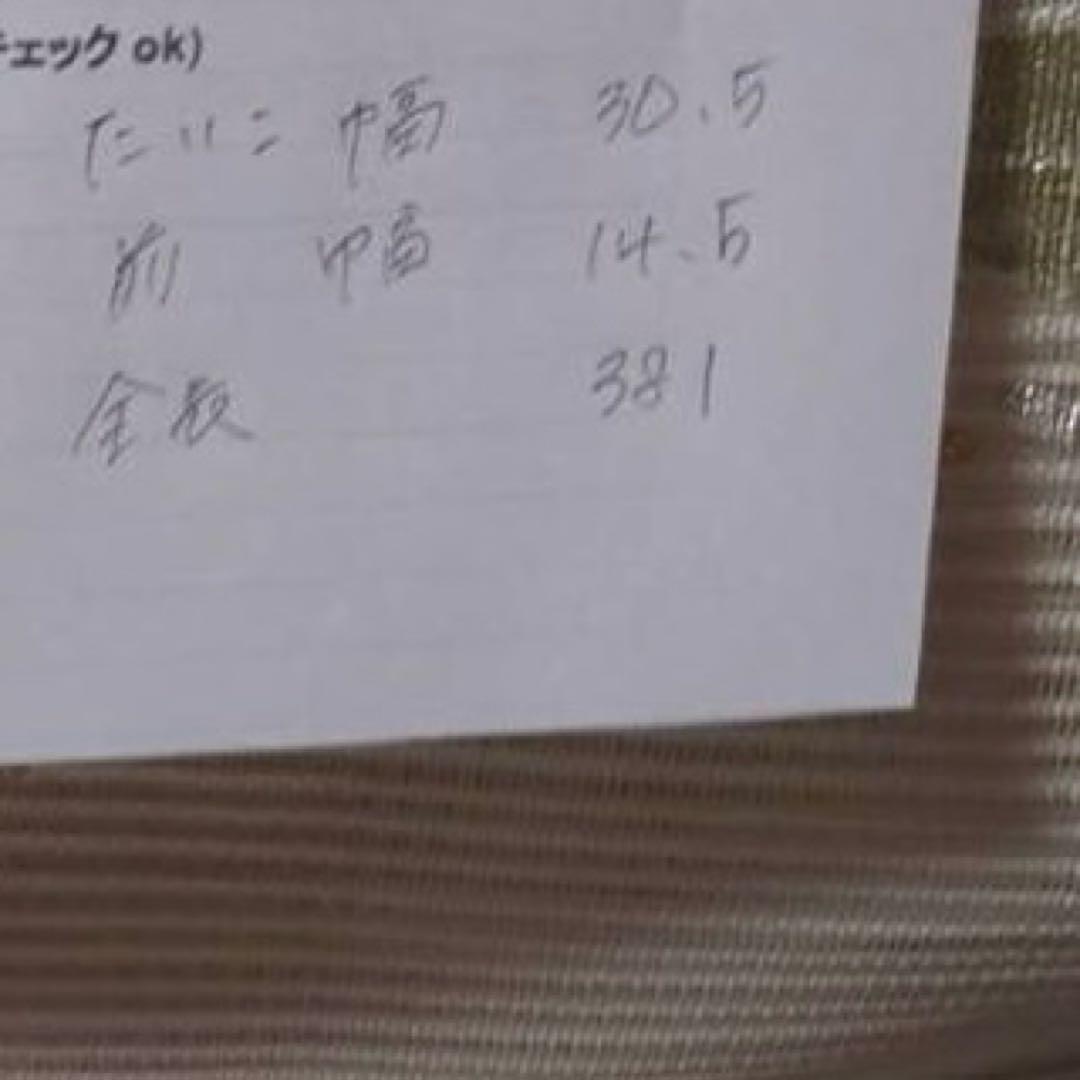 チェック ok)
たいこ 幅 30.5
前 幅 14.5
全長 381